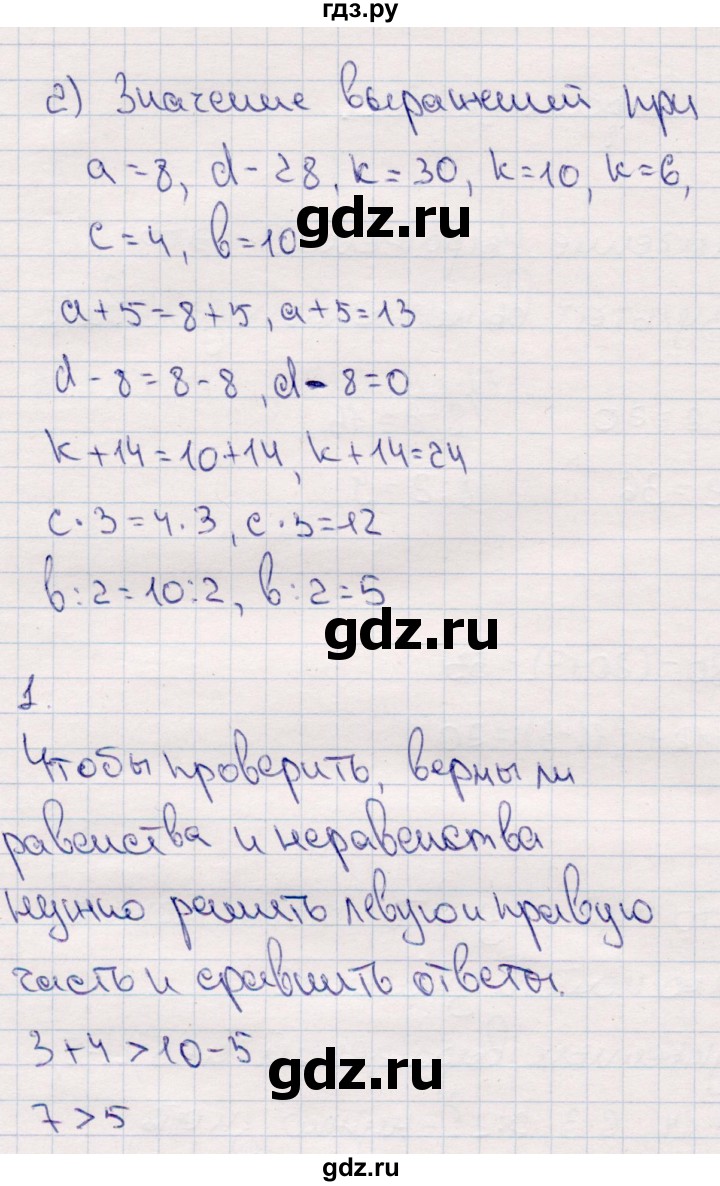 гдз.ру
2) Значение выражений при
a=8, d-28, k=30, k=10, k=6,
gdz.ru
c=4, b=10
a+5=8+5, a+5=13
d-8=8-8, d-8=0
k+14=10+14, k+14=24
c·3=4·3, c·3=12
b:2=10:2, b:2=5
gdz.ru
1.
Чтобы проверить, верны ли
равенства и неравенства
нужно решить левую и правую
часть и сравнить ответы.
3+4>10-5
gdz.ru
7>5
gdz.ru